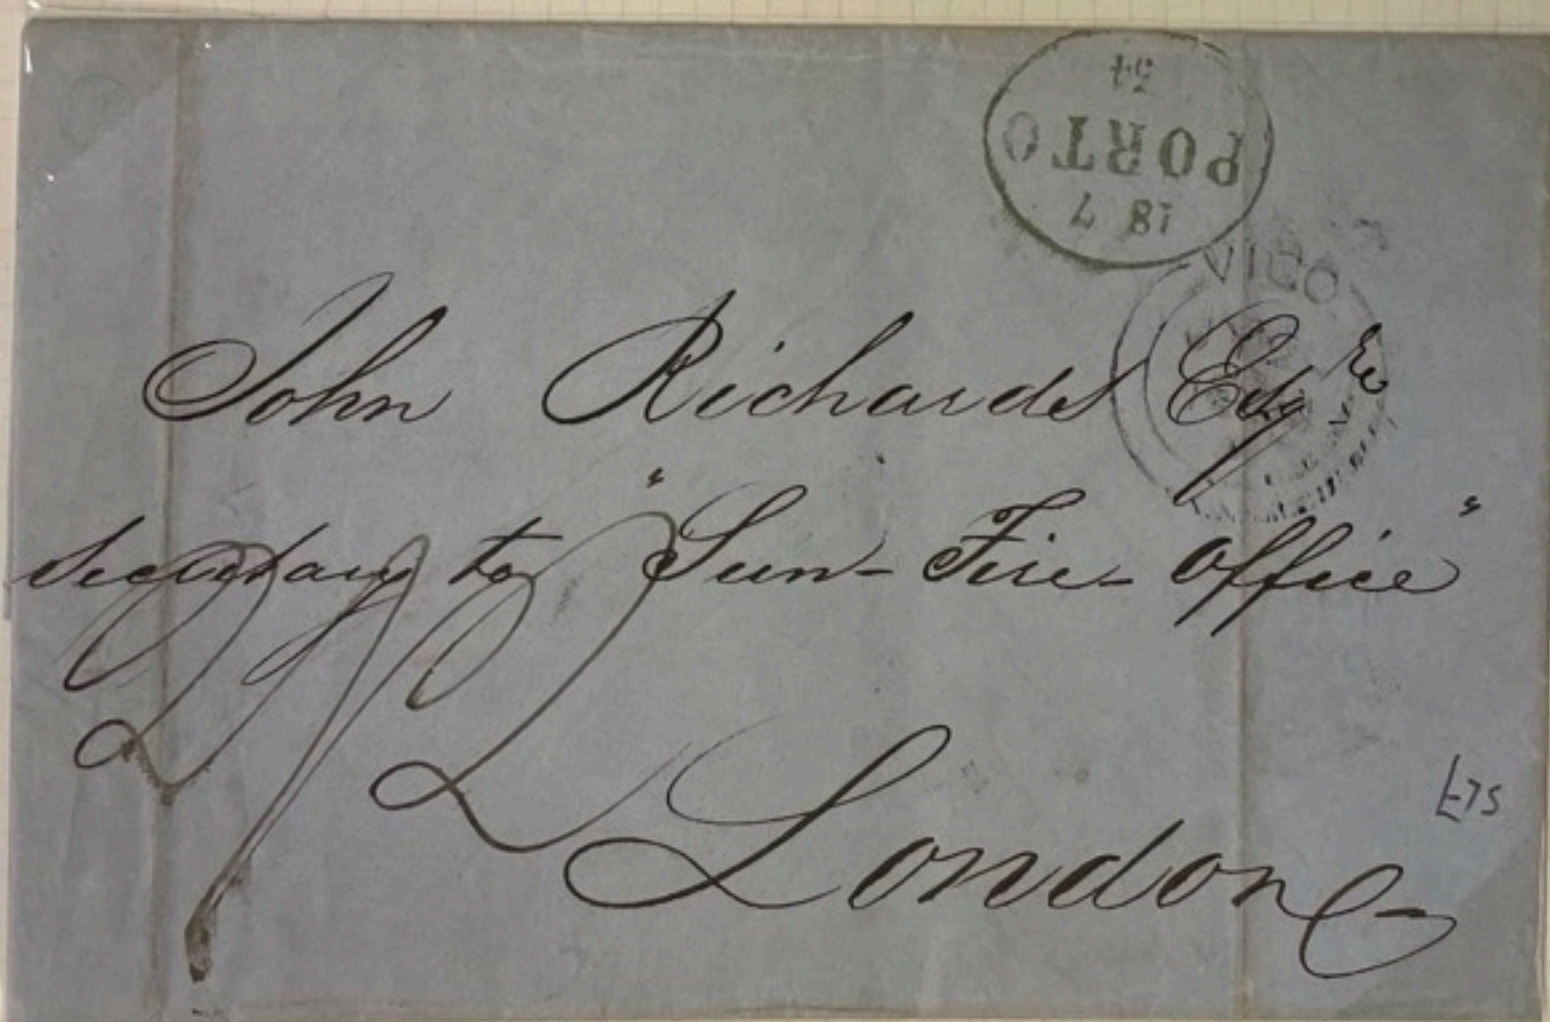 54
PORTO
18 7
VIGO
John Richards Esqre
Secretary to "Sun-Fire-Office"
2/2
London
£75